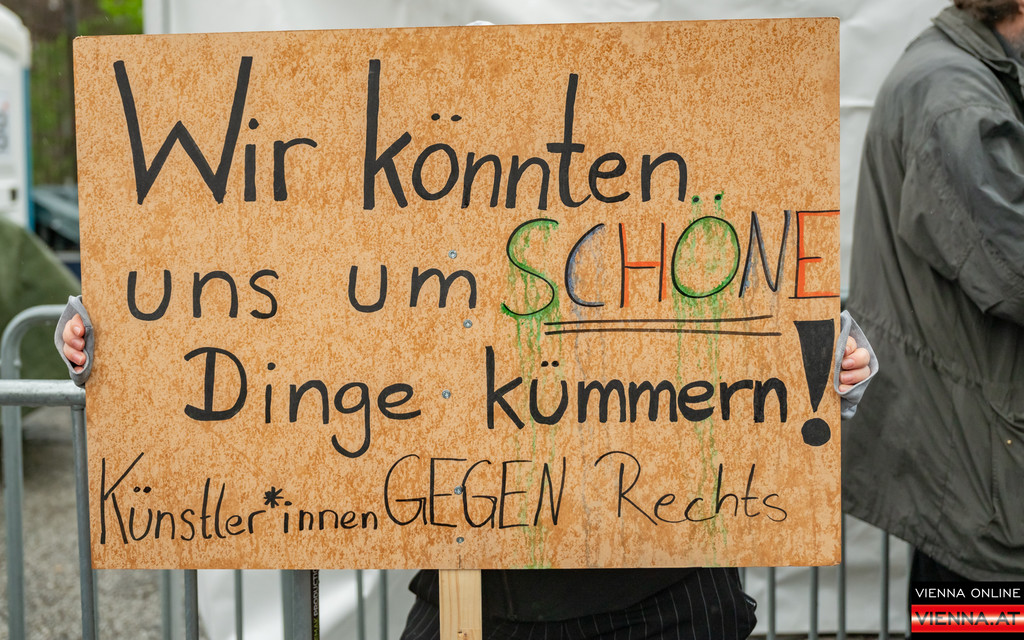 Wir könnten
uns um SCHÖNE
Dinge kümmern!
Künstler*innen GEGEN Rechts
VIENNA ONLINE
VIENNA.AT